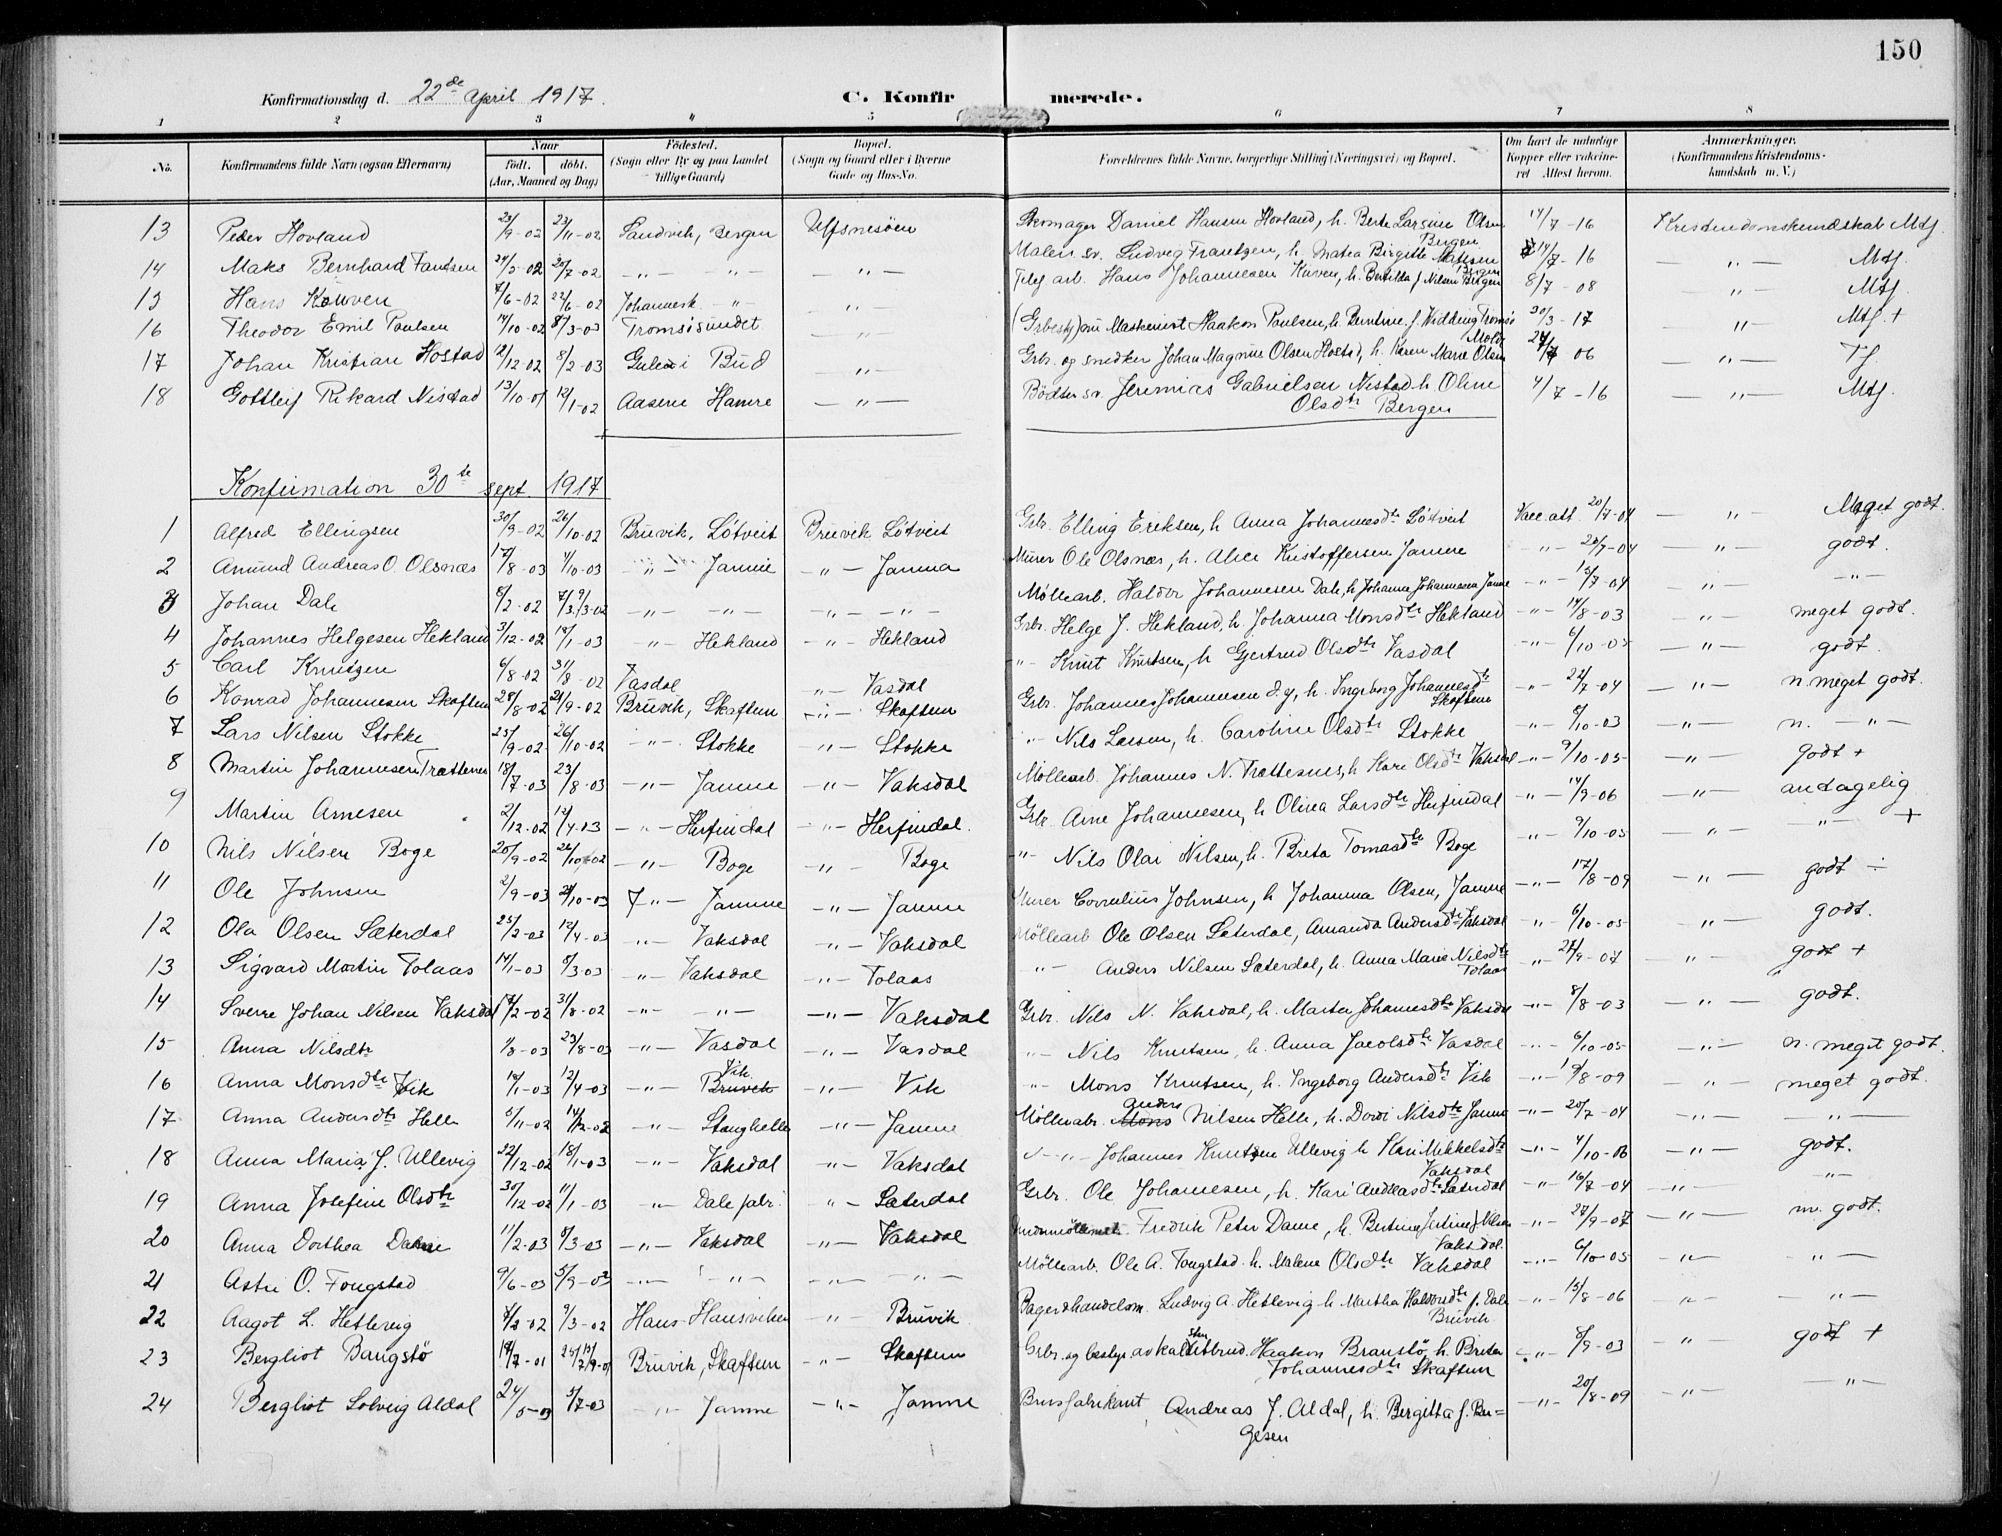 150
Konfirmationsdag d. 22de April 1917. C. Konfirmerede.
1 2 3 " 5 6 7 8
No. Konfirmandens fulde Navn (ogsaa Efternavn) Naar født. døbt. (Aar, Maaned og Dag) Fødested. (Sogn eller By og paa Landet tillige Gaard) Bopæl. (Sogn og Gaard eller i Byerne Gade og Hus-No. Forældrenes fulde Navne, borgerlige Stilling (Næringsvei) og Bopæl. Om havt de naturlige Kopper eller vaccineret Attest herom. Anmærkninger. (Konfirmandens Kristendomskundskab m. V.)
13 Peder Hovland 23/9-02 23/11-02 Sandvik, Bergen Ulfsnesöen Skomager Daniel Hansen Hovland, h. Berte Larsine Olsen Bergen 14/7-16 Kristendomskundskab Mtf.
14 Maks Bernhard 20/7-02 -"- " -"- Maler sv. Ludvig Frantzen, h. Matea Birgitte 14/7-16 -"- Mtf.
15 Hans 7/6-02 22/6-02 Johannesk. -"- -"- Telef arb. Hans Johannesen h. f. Nilsen Bergen 8/7-08 -"- Mtf.
16 Theodor Emil Paulsen 14/10-02 8/3-03 Tromsösundet " Maskinist Haakon Paulsen, h. Berntine f. Kidding Tromsö 30/3-17 -"- Mtf. +
17 Johan Kristian Hostad 12/12 02 8/2-03 i Bud -"- Grb. og snedker Johan Magnus Olsen Hostad, h. Karen Marie Olsen Molde 06 -"- Tf.
18 Gottleif Rikard Nistad 13/10-01 12/1-02 Aasene Hamre -"- Bödker sv. Jeremias Gabrielsen Nistad h. Oline Olsdtr Bergen 4/7-16 -"- Mtf.
Konfirmation 30te sept. 1917
1 Alfred Ellingsen 30/9-02 26/10-02 Bruvik, Lötveit Bruvik Lötveit Grbr. Elling Eriksen, h Anna Johannesdtr Lötveit Vacc. att. 20/7-04 -"- Meget godt.
2 Amund Andreas O. Olsnæs 17/8-03 4/10-03 -"- Jamne -"- Jamna Murer Ole Olsnæs, h. Alice Kristoffersen Jamne -"- 20/7-04 -"- godt.
3 Johan Dale 8/2-02 -"- -"- -"- -"- Möllearb. Haldor Johannesen Dale, h. Johanna Johannesen Jamne -"- 15/7-04 " -"-
4 Johannes Helgesen Hekland 3/12-02 18/1-03 -"- Hekland -"- Hekland Grbr. Helge J. Hekland, h. Johanna Monsdtr Hekland -"- 14/8-03 -"- meget godt.
5 Carl Knutzen 6/8-02 31/8-02 Vasdal -"- Vasdal -"- Knut Knutsen, h Gjertrud Olsdtr Vasdal -"- 6/10-05 -"- godt.
6 Konrad Johannesen Skaftun 28/8-02 21/9-02 Bruvik, Skaftun -"- Skaftun Grbr. Johannes Johannesen d.y, h. Ingeborg Johannesdtr Skaftun -"- 22/7-04 -"- n. meget godt.
7 Lars Nilsen Stokke 25/9-02 26/10-02 -"- Stokke -"- Stokke -"- Nils Larsen, h. Caroline Olsdtr Stokke -"- 8/10-03 -"- n. -"-
8 Martin Johannesen Trættenes 18/7-03 23/8-03 -"- Jamne -"- Vaksdal Möllearb. Johannes N. Trættenes, h Kari Olsdtr Vaksdal -"- 9/10-05 -"- godt +
9 Martin Arnesen 2/12-02 12/4-03 -"- Herfindal -"- Herfindal. Grbr. Arne Johannesen, h Olina Larsdtr Herfindal -"- 14/9-06 -"- antagelig
10 Nils Nilsen Boge 20/9-02 26/10-02 -"- Boge -"- Boge -"- Nils Olai Nilsen, h. Breta Tomasdtr Boge -"- 9/10-05 -"- -"- +
11 Ole Johnsen 2/9-03 21/10-03 -"- Jamne -"- Jamne Murer Cornelius Johnsen, h Johanna Olsen, Jamne -"- 17/8-09 -"- godt ÷
12 Ola Olsen Sæterdal 25/2-03 12/4-03 -"- Vaksdal -"- Vaksdal Möllearb Ole Olsen Sæterdal, Amanda Andersdtr Vaksdal -"- 6/10-05 -"- godt.
13 Sigvard Martin Tolaas 14/1-03 8/3-03 -"- Vaksdal -"- Tolaas -"- Anders Nilsen Sæterdal, h. Anna Marie Nilsdtr Tolaas -"- 27/9-07 -"- godt +
14 Sverre Johan Nilsen Vaksdal 31/8-02 -"- -"- -"- Vaksdal Grbr. Nils N. Vaksdal, h. Marta Johannesdtr Vaksdal -"- 8/8-03 -"- godt.
15 Anna Nilsdtr 1/8-03 23/8-03 -"- Vasdal -"- Vasdal -"- Nils Knutsen, h. Anna Jacobsdtr Vasdal -"- 6/10-05 -"- n. meget godt.
16 Anna Monsdtr Vik 12/4-03 -"- Bruvik Vik -"- Vik -"- Mons Knutsen, h. Ingeborg Andersdtr Vik -"- -09 -"- meget godt.
17 Anna Andersdtr Helle 5/11-02 -"- Stanghelle -"- Jamne Möllearb. Mons Anders Nilsen Helle, h. Dordi Nilsdtr Jamne -"- 20/7-04 -"- -"-
18 Anna Maria J. Ullevig 22/12-02 18/1-03 -"- Vaksdal -"- Vaksdal -"- Johannes Knutsen Ullevig h Kari Mikkelsdtr Vaksdal -"- 4/10-06 -"- godt.
19 Anna Josefine Olsdtr 30/12-02 11/1-03 -"- Dale fabr. -"- Sæterdal Grbr. Ole Johannesen, h. Kari Andreasdtr Sæterdal -"- 16/7-04 -"- -"-
20 Anna Dorthea Dame 11/2-03 8/3-03 -"- Vaksdal -"- Vaksdal Fredrik Peter Dame, h. Vaksdal. -"- 27/9-07 -"- m. godt.
21 Astri O. Fougstad 9/6-03 -"- -"- -"- -"- Möllearb. Ole A. Fougstad h. Malene Olsdtr Vaksdal -"- 6/10-05 -"- -"-
22 Aagot L. Hetlevig 9/3-02 Haus Hausviken -"- Bruvik Bager & handelsm. Ludvig A. Hetlevig h Martha Haldorsdtr f. Dale Bruvik -"- 15/8-06 -"- -"-
23 Bergliot Bangstö 18/7-01 Bruvik, Skaftun -"- Skaftun Grbr. og bestyr. av kalkstenbrud. Haakon h. Brita Johannesdtr Skaftun -"- 8/9-03 -"- godt +
24 Bergliot Solveig Aldal 24/5-03 5/7-03 -"- Jamne -"- Jamne Brusfabrikant Andreas J. Aldal, h. Bergitta f. Bergesen -"- 20/8-09 -"- -"-